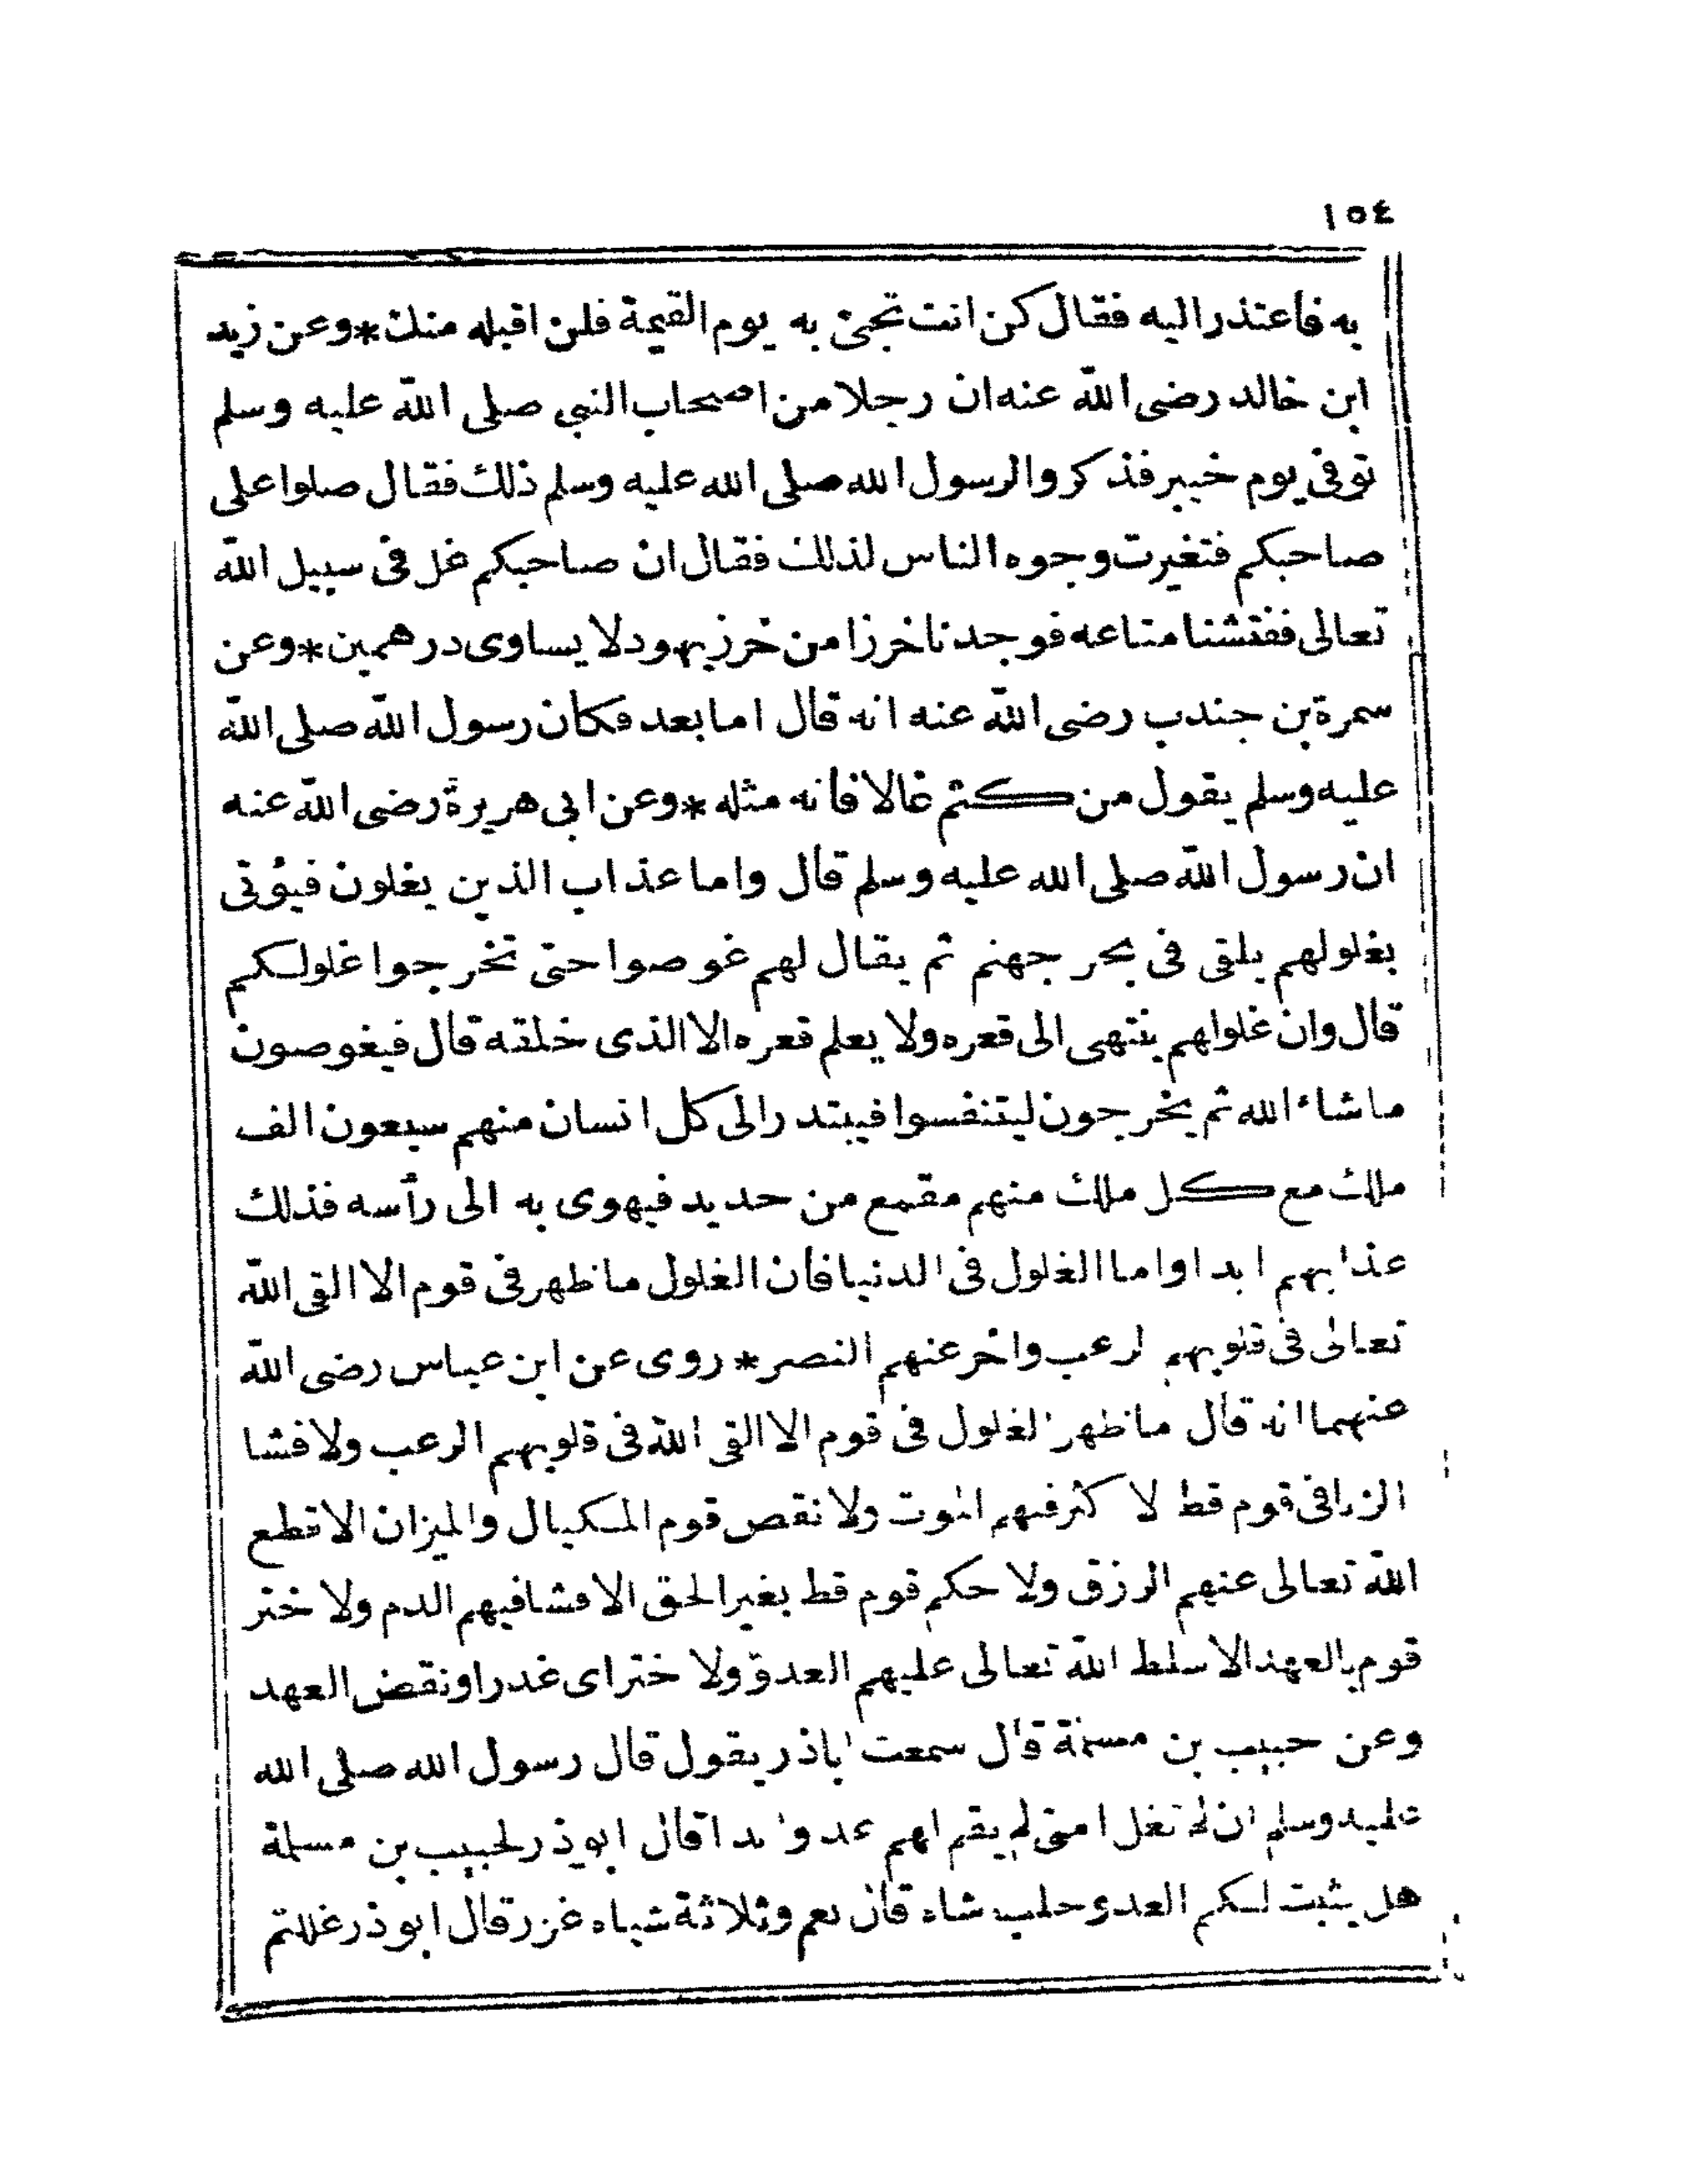 ١٥٤
به فاعتذر اليه فقال كن انت تجئ به يوم القيمة فلن اقبله منك * وعن زيد
ابن خالد رضى الله عنه ان رجلا من اصحاب النبي صلى الله عليه وسلم
توفى يوم خيبر فذكروا لرسول الله صلى الله عليه وسلم ذلك فقال صلوا على
صاحبكم فتغيرت وجوه الناس لذلك فقال ان صاحبكم غل فى سبيل الله
تعالى ففتشنا متاعه فوجدنا خرزا من خرز يهود لا يساوى درهمين * وعن
سمرة بن جندب رضى الله عنه انه قال اما بعد فكان رسول الله صلى الله
عليه وسلم يقول من كتم غالا فانه مثله * وعن ابى هريرة رضى الله عنه
ان رسول الله صلى الله عليه وسلم قال واما عذاب الذين يغلون فيؤتى
بغلولهم يلقى فى بحر جهنم ثم يقال لهم غوصوا حتى تخرجوا غلولكم
قال وان غلولهم ينتهى الى قعره ولا يعلم قعره الا الذى خلقه قال فيغوصون
ما شاء الله ثم يخرجون ليتنفسوا فيبتدر الى كل انسان منهم سبعون الف
ملك مع كل ملك منهم مقمع من حديد فيهوى به الى رأسه فذلك
عذابهم ابدا واما الغلول فى الدنيا فان الغلول ما ظهر فى قوم الا القى الله
تعالى فى قلوبهم لرعب واخر عنهم النصر * روى عن ابن عباس رضى الله
عنهما انه قال ما ظهر الغلول فى قوم الا القى الله فى قلوبهم الرعب ولا فشا
الزنا فى قوم قط لا كثر فيهم الموت ولا نقص قوم المكيال والميزان الا قطع
الله تعالى عنهم الرزق ولا حكم قوم قط بغير الحق الا فشا فيهم الدم ولا ختر
قوم بالعهد الا سلط الله تعالى عليهم العدو ولا ختر اى غدر او نقض العهد
وعن حبيب بن مسلمة قال سمعت اباذر يقول قال رسول الله صلى الله
عليه وسلم ان لم تغل امتى لم يقم لهم عدو ابدا قال ابوذر لحبيب بن مسلمة
هل يثبت لكم العدو حلب شاه قال نعم وثلاثة شياه غزر قال ابوذر غللتم